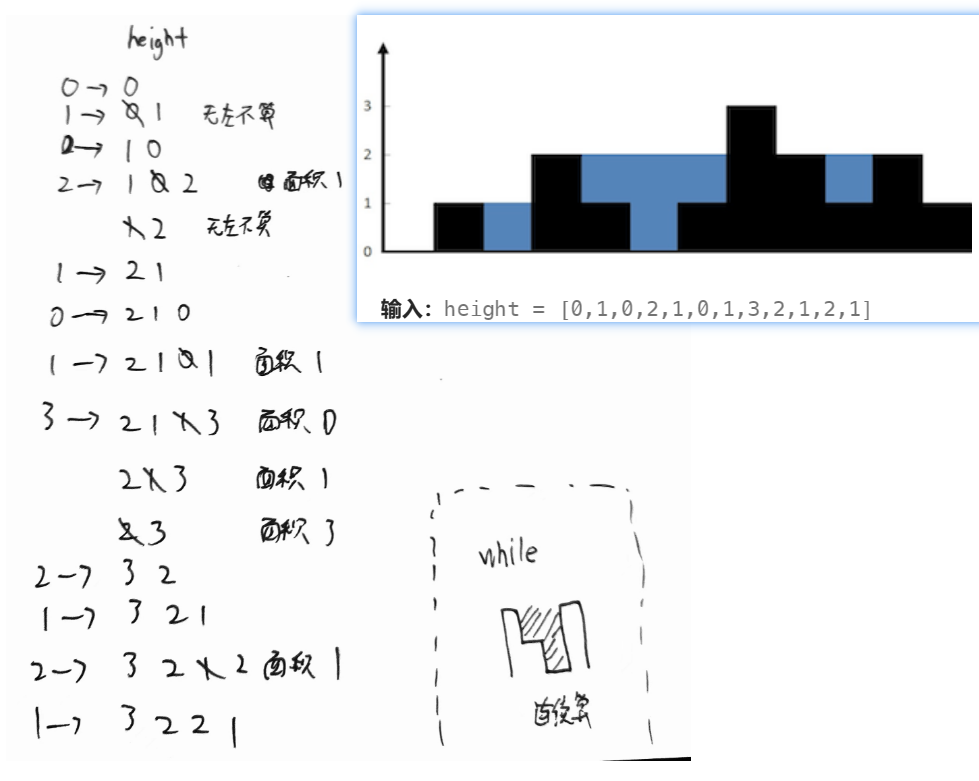 height
0→ 0
1→ 0 1 无左不算
0→ 1 0
2→ 1 0 2 面积 1
1 2 无左不算
1→ 2 1
0→ 2 1 0
1→ 2 1 0 1 面积 1
3→ 2 1 1 3 面积 0
2 1 3 面积 1
2 3 面积 3
2→ 3 2
1→ 3 2 1
2→ 3 2 1 2 面积 1
1→ 3 2 2 1
3
2
1
0
输入: height = [0,1,0,2,1,0,1,3,2,1,2,1]
while
连续算